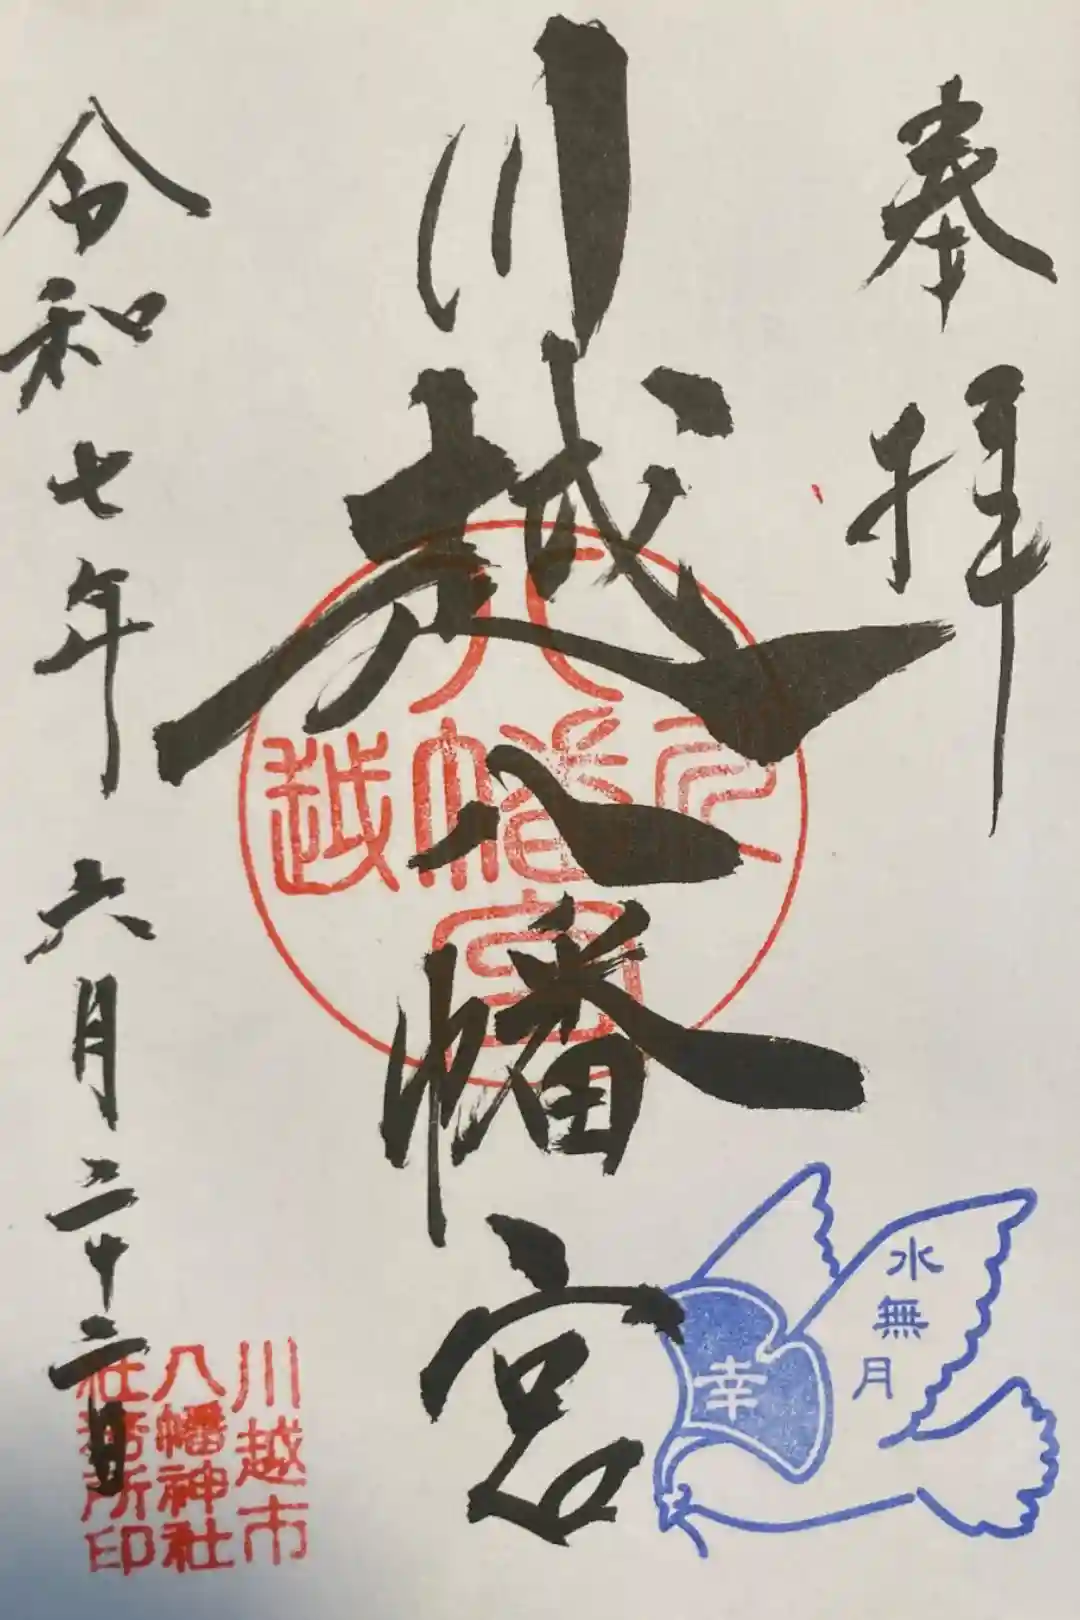 奉拝
川越八幡宮
令和七年六月二十二日
川越
八幡宮
川越市
八幡神社
社務所印
水無月
幸